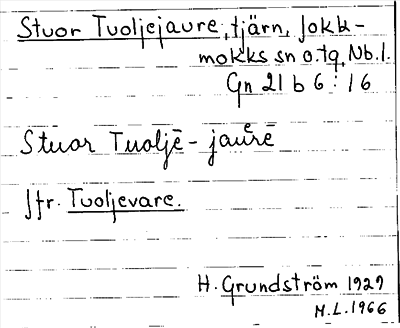 Stuor Tuoljejaure, tjärn, Jokk-
mokks sn o. tg, Nb. l.
Gn 21 b 6 : 16
Stuor Tuoljē - jauerē
Jfr. Tuoljevare.
H. Grundström 1929
M.L. 1966